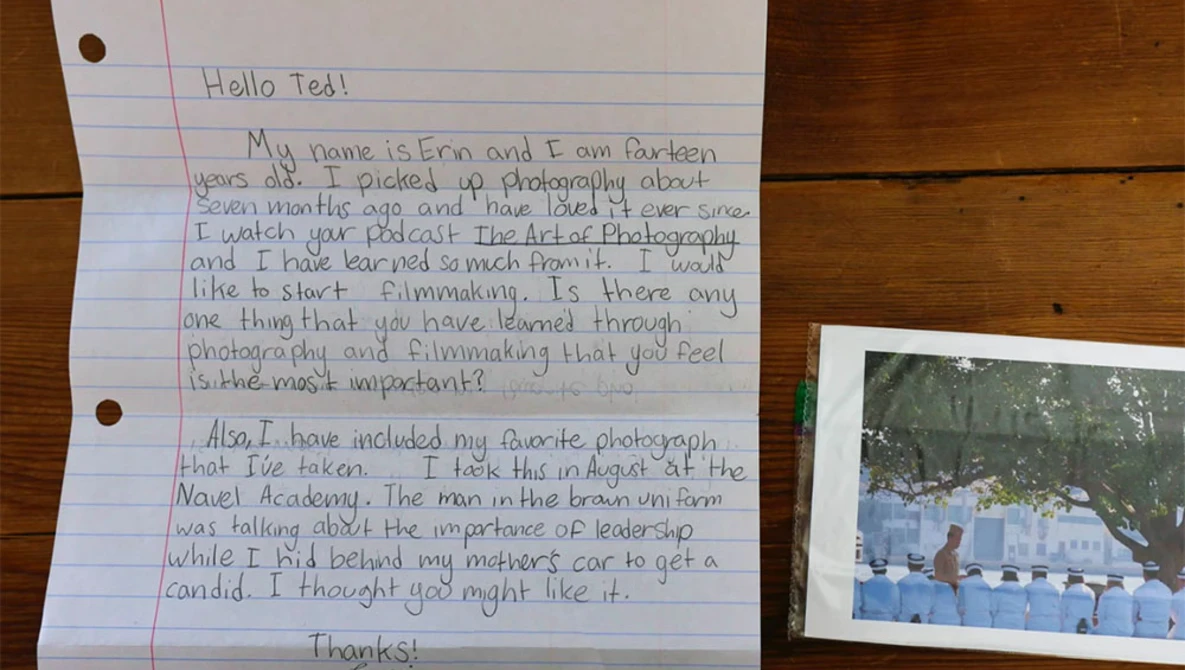 Hello Ted!
My name is Erin and I am fourteen
years old. I picked up photography about
seven months ago and have loved it ever since.
I watch your podcast The Art of Photography
and I have learned so much from it. I would
like to start filmmaking. Is there any
one thing that you have learned through
photography and filmmaking that you feel
is the most important?
Also, I have included my favorite photograph
that I've taken. I took this in August at the
Navel Academy. The man in the brown uniform
was talking about the importance of leadership
while I hid behind my mother's car to get a
candid. I thought you might like it.
Thanks!